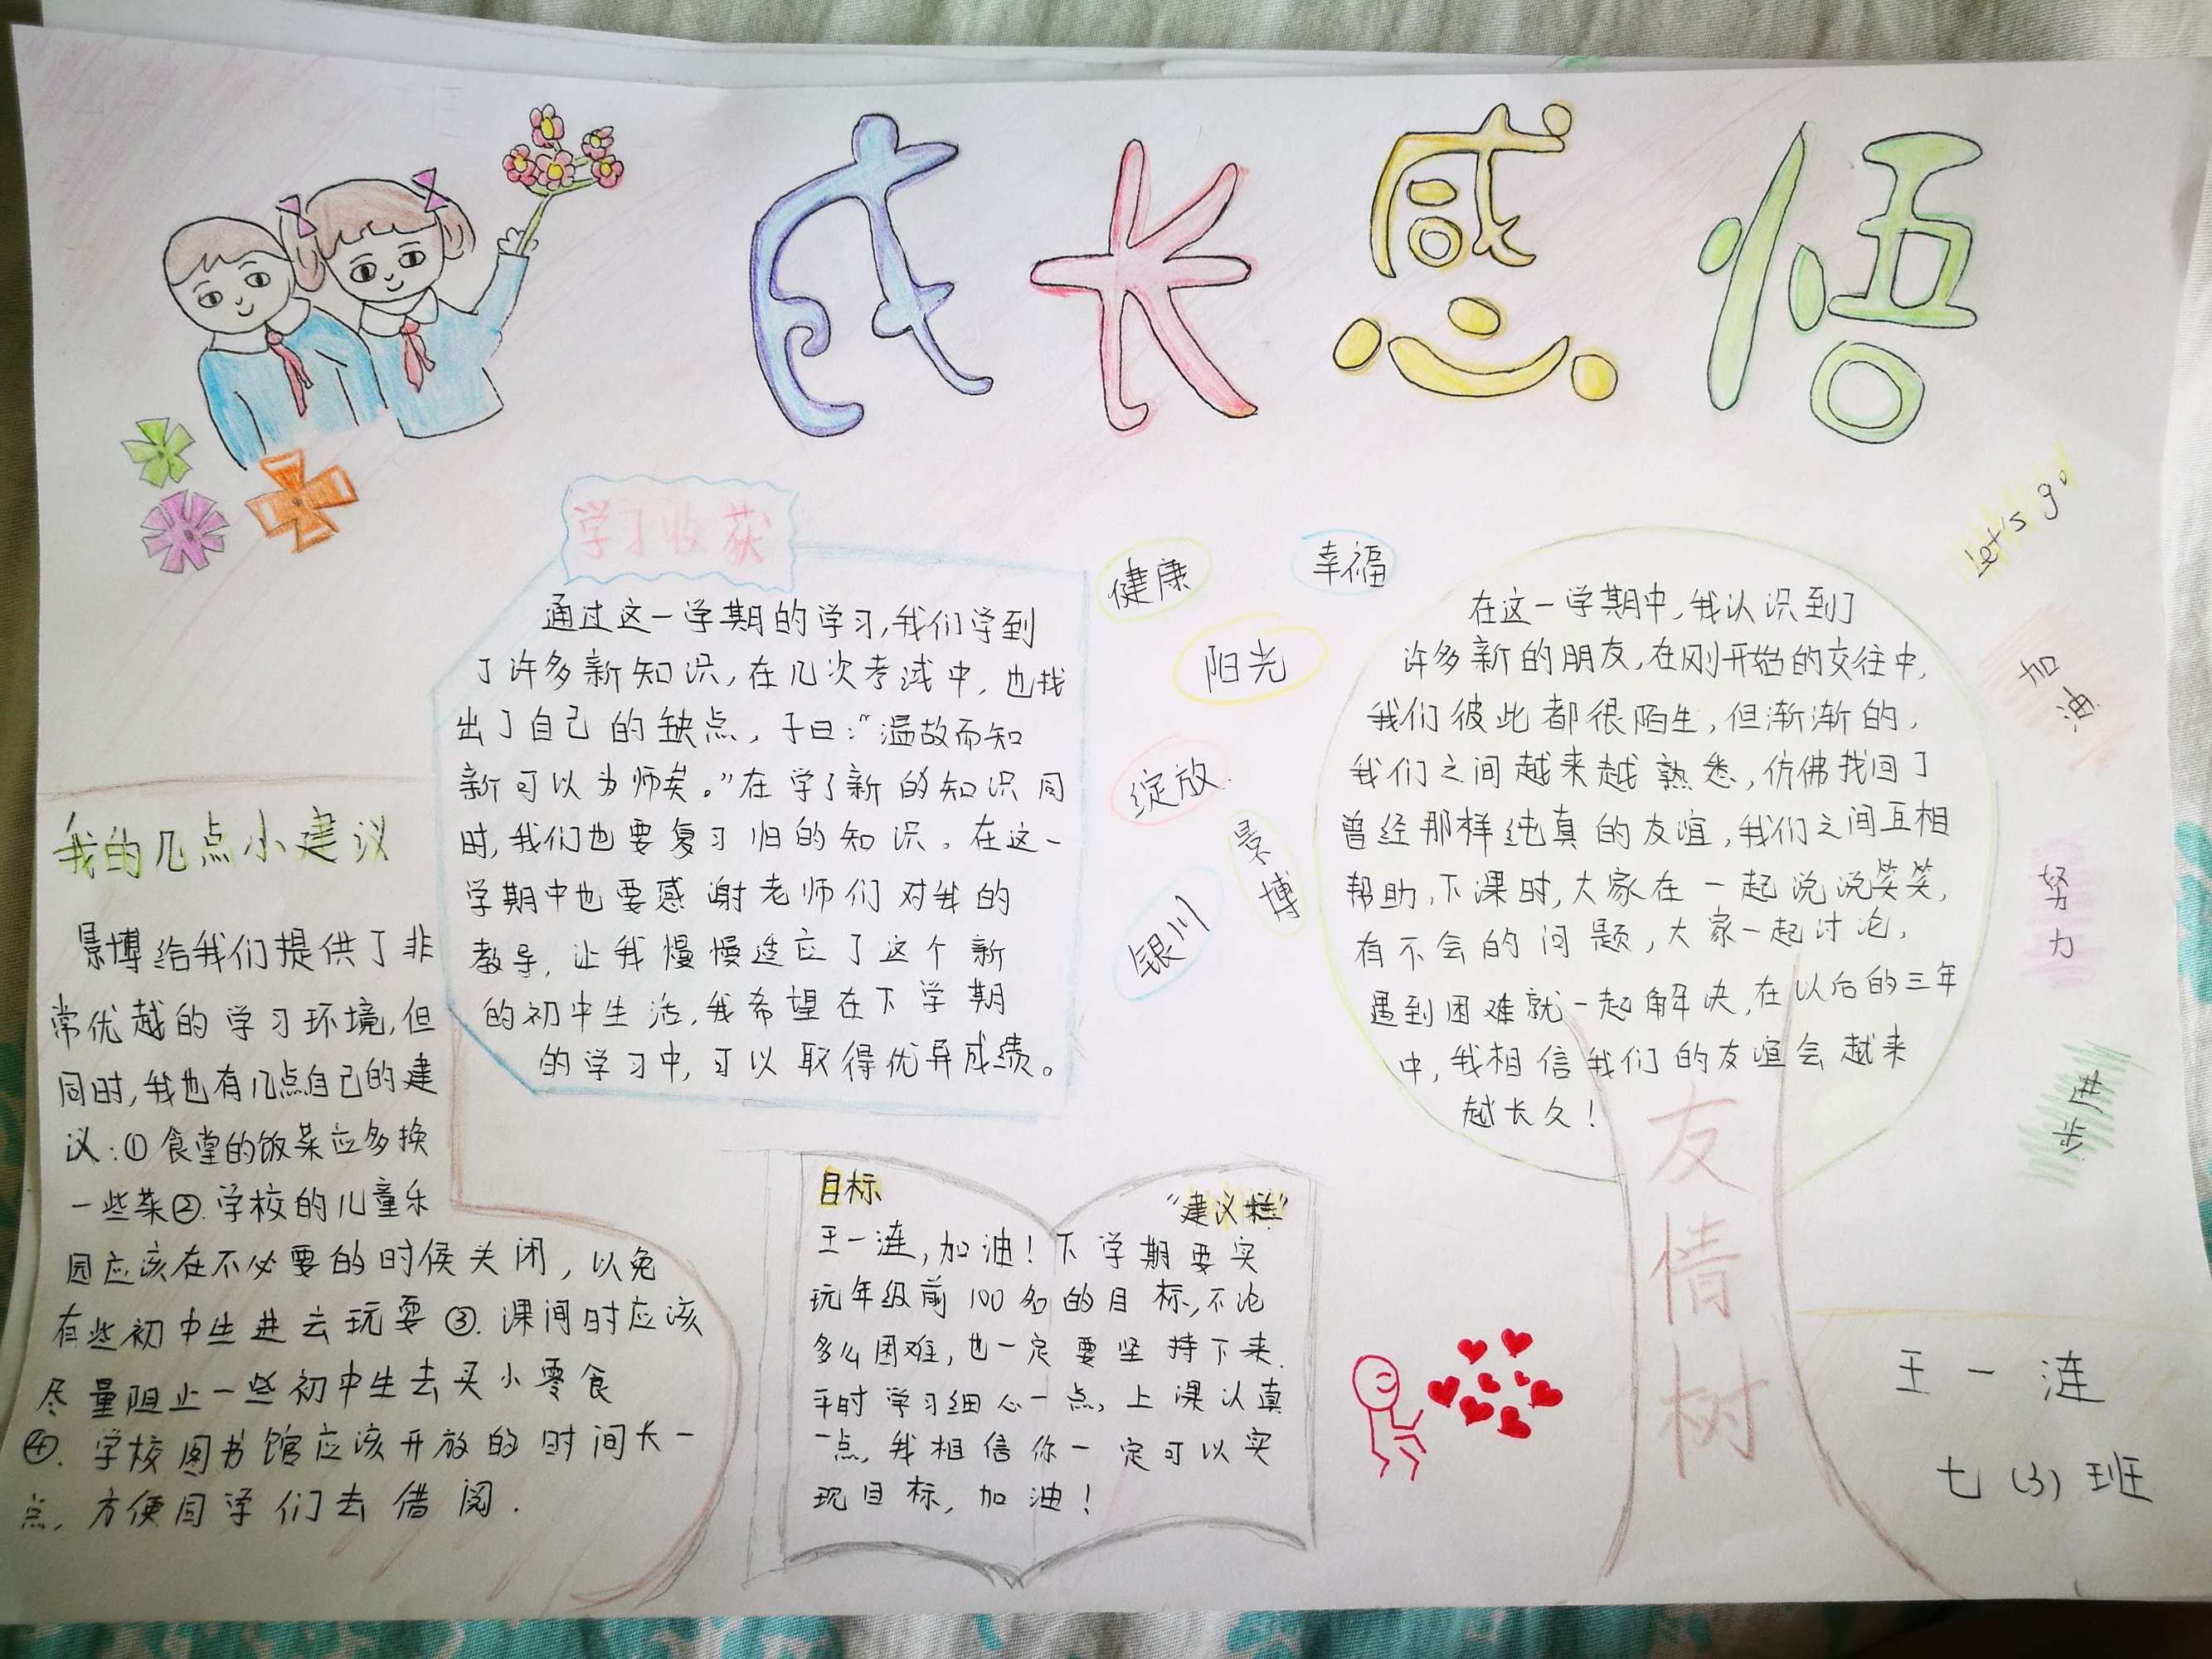 成长感悟
学习收获
通过这一学期的学习,我们学到
了许多新知识,在几次考试中,也找
出了自己的缺点,子曰:“温故而知
新可以为师矣。”在学了新的知识同
时,我们也要复习旧的知识。在这一
学期中也要感谢老师们对我的
教导,让我慢慢适应了这个新
的初中生活,我希望在下学期
的学习中,可以取得优异成绩。
健康
幸福
阳光
绽放.
景博
银川
在这一学期中,我认识到了
许多新的朋友,在刚开始的交往中,
我们彼此都很陌生,但渐渐的,
我们之间越来越熟悉,仿佛找回了
曾经那样纯真的友谊,我们之间互相
帮助,下课时,大家在一起说说笑笑,
有不会的问题,大家一起讨论,
遇到困难就一起解决,在以后的三年
中,我相信我们的友谊会越来
越长久!
友情树
Let's go
加油
努力
进步
我的几点小建议
景博给我们提供了非
常优越的学习环境,但
同时,我也有几点自己的建
议:①食堂的饭菜应多换
一些菜②.学校的儿童乐
园应该在不必要的时候关闭,以免
有些初中生进去玩耍③.课间时应该
尽量阻止一些初中生去买小零食
④.学校图书馆应该开放的时间长一
点,方便同学们去借阅.
目标
“建议栏”
王一涟,加油!下学期要实
玩年级前100名的目标,不论
多么困难,也一定要坚持下来.
平时学习细心一点,上课认真
一点,我相信你一定可以实
现目标,加油!
王一涟
七(3)班